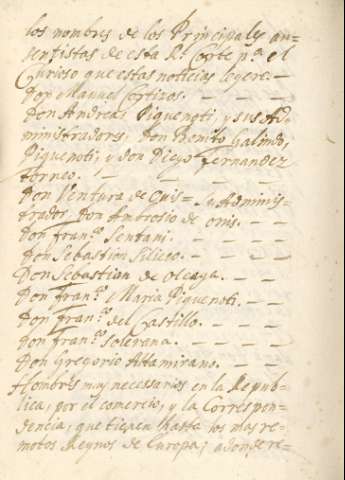 los nombres de los Principales au-
sentistas de esta Rl. Corte pa. el
Curioso que estas noticias leyere. —
Don Manuel Cortizos. — — — —
Don Andrea Piquenoti, y sus Ad-
ministradores, Don Benito Galindo,
Piquenoti, y don Diego Fernandez
torneo. — — — — —
Don Ventura de Onis — y Adminis-
trador, don Ambrosio de onis. — —
Don franco. Sentani. — — — —
don Sebastian Siliceo. — — — —
Don Sebastian de Oleaga. — — —
Don franco. Maria Piquenoti. — —
Don franco. del Castillo. — — — —
don franco. Solerana. — — — —
Don Gregorio Altamirano. — —
Hombres muy necesarios en la Repub-
lica, por el comercio, y la Correspon-
dencia, que tienen hasta los mas re-
motos Reynos de Europa; adonde re-